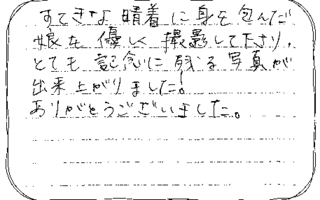 すてきな晴着に身を包んだ
娘を優しく撮影して下さり、
とても記念に残る写真が
出来上がりました!
ありがとうございました。